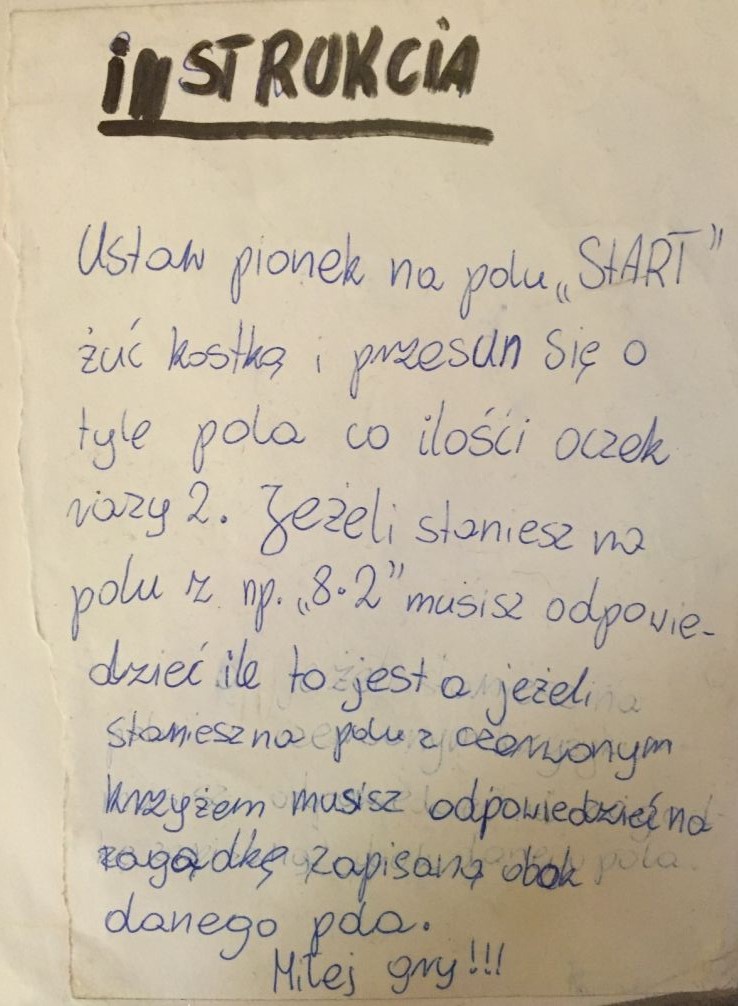 INSTRUKCIA
Ustaw pionek na polu „START"
żuć kostką i przesun się o
tyle pola co ilośći oczek
razy 2. Jeżeli staniesz na
polu z np. „8·2" musisz odpowie-
dzieć ile to jest a jeżeli
staniesz na polu z czerwonym
krzyżem musisz odpowiedzieć na
zagadkę zapisaną obok
danego pola.
Miłej gry!!!